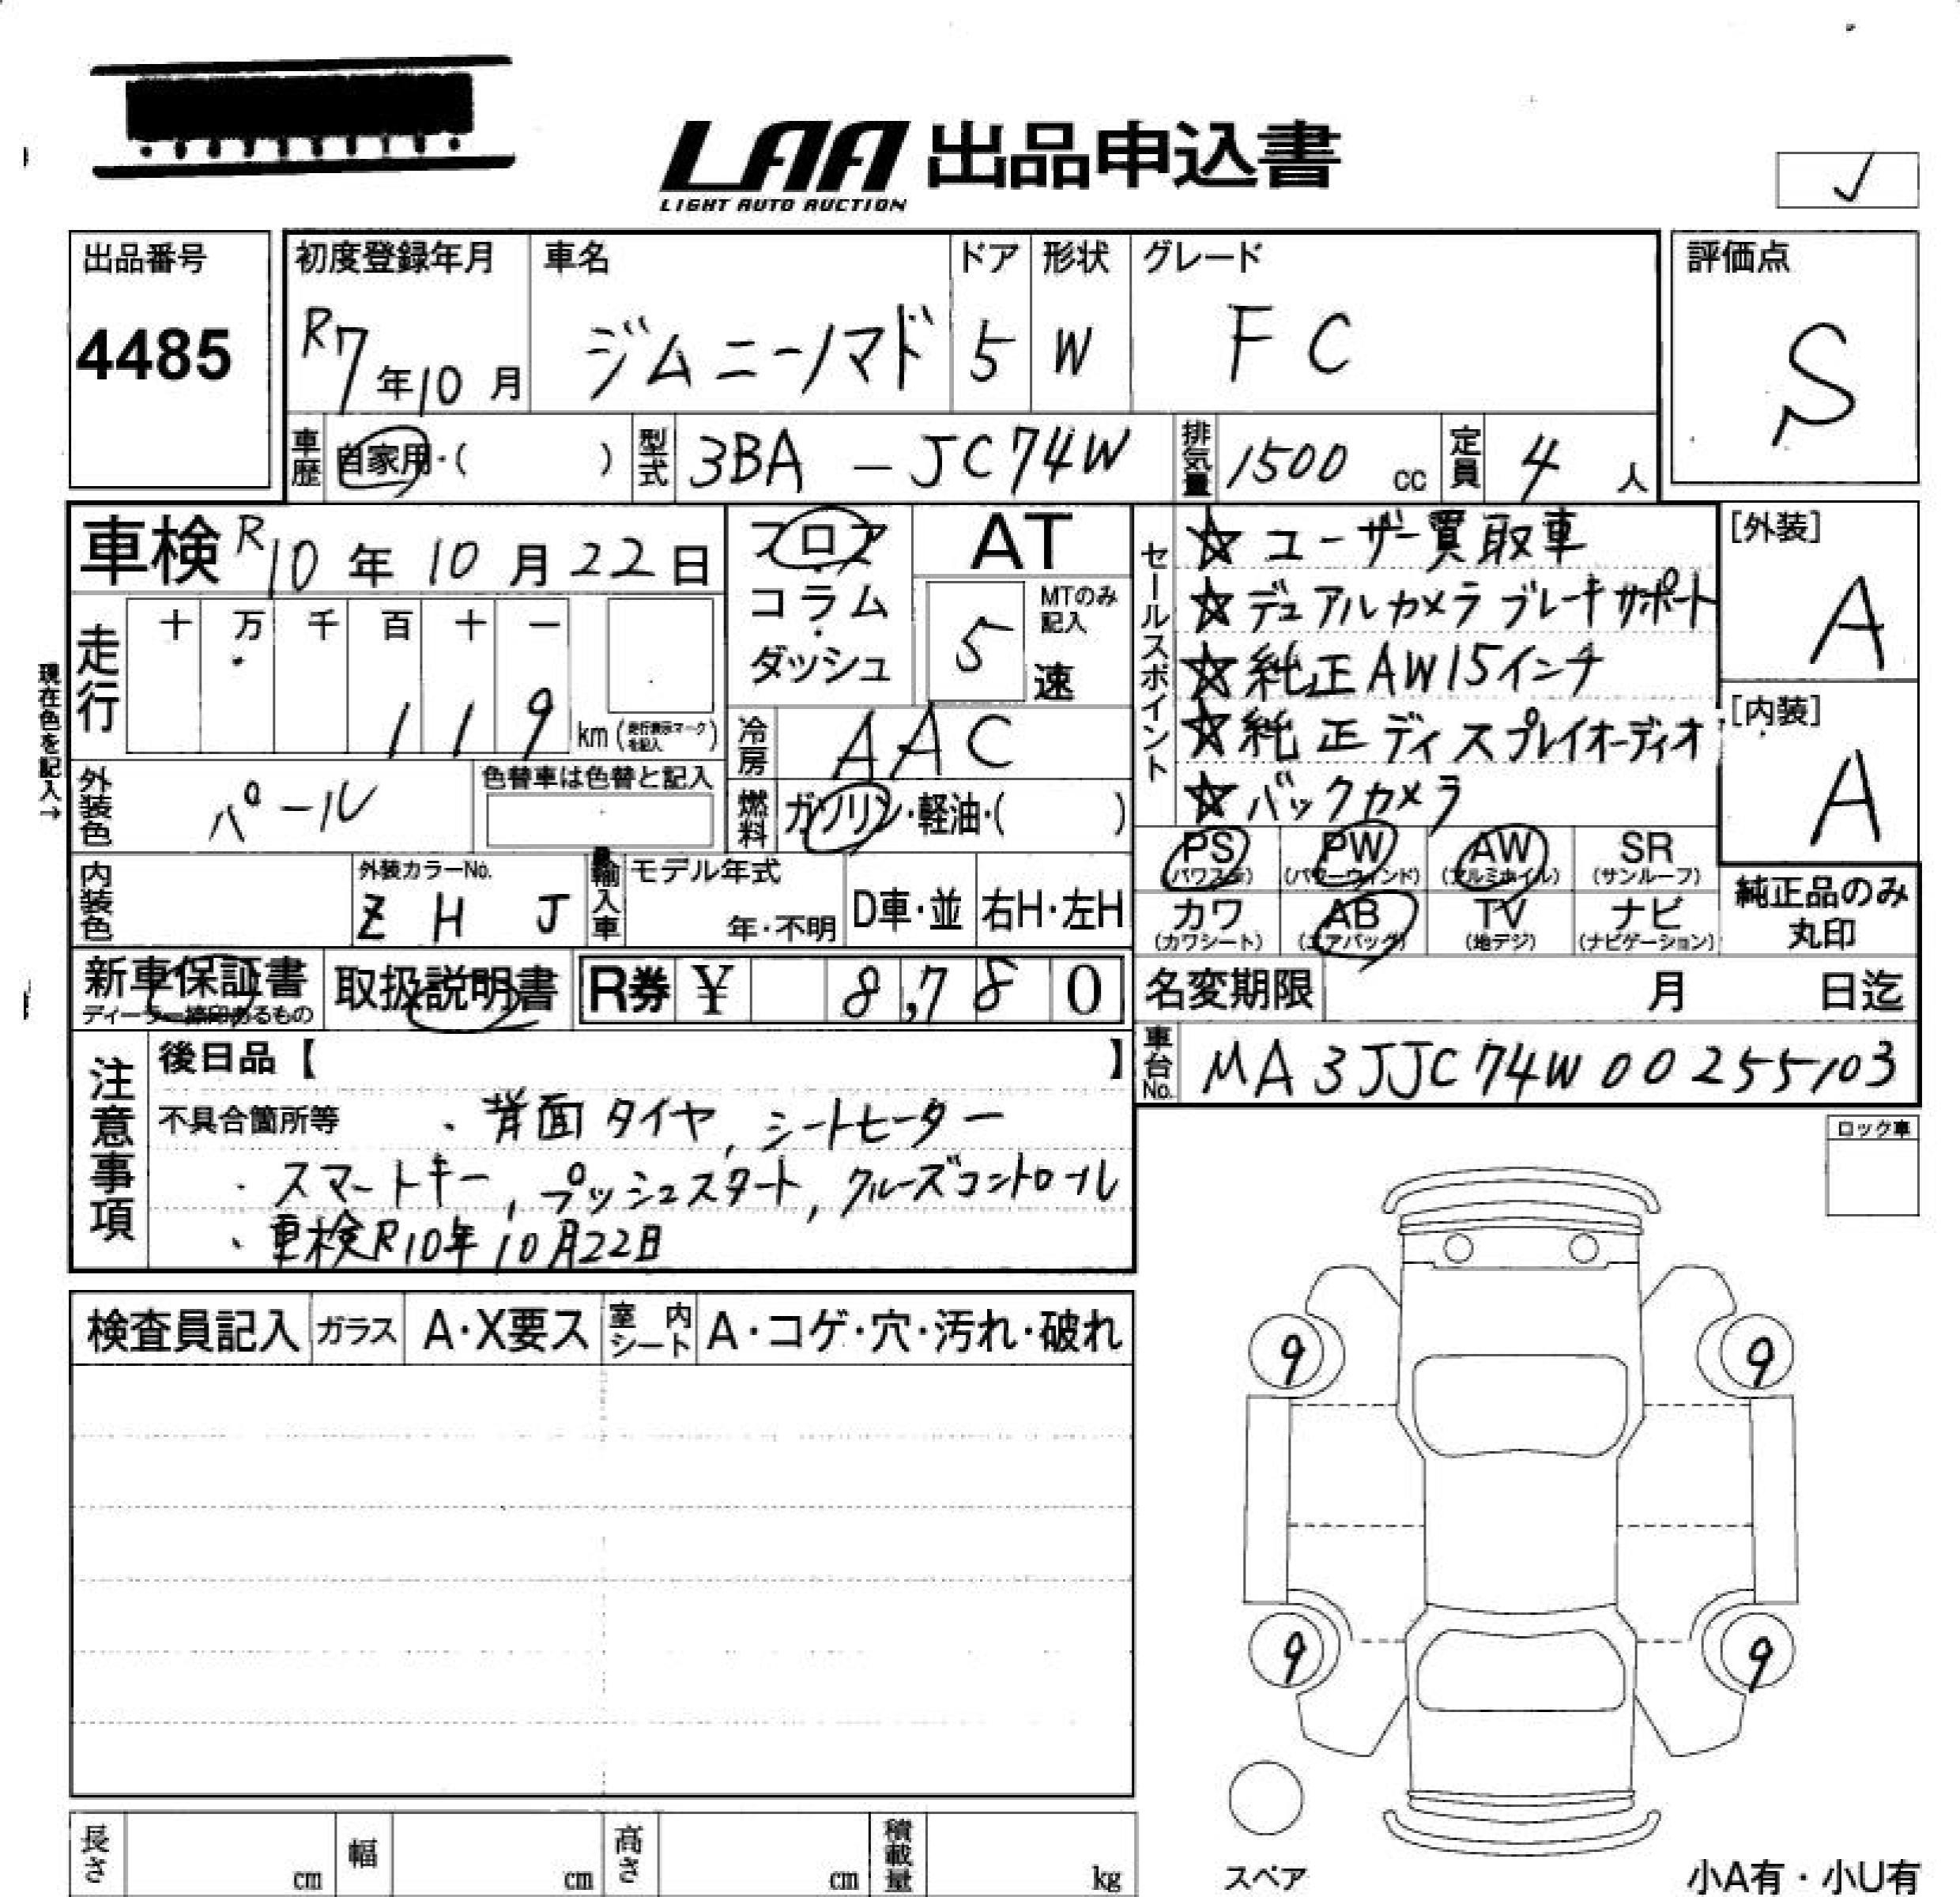 LAA 出品申込書
LIGHT AUTO AUCTION
✓
出品番号
4485
初度登録年月
R7年10月
車名
ジムニーノマド
ドア
5
形状
W
グレード
FC
評価点
S
車歴
自家用・( )
型式
3BA-JC74W
排気量
1500 cc
定員
4人
車検 R10年10月22日
フロア・コラム・ダッシュ
AT
5速
MTのみ記入
セールスポイント
☆ユーザー買取車
☆デュアルカメラブレーキサポート
☆純正AW15インチ
☆純正ディスプレイオーディオ
☆バックカメラ
[外装]
A
[内装]
A
現在色を記入→
走行
十 万 千 百 十 一
1 1 9 km (走行表示マークを記入)
冷房
AAC
外装色
パール
色替車は色替と記入
燃料
ガソリン・軽油・( )
内装色
外装カラーNo.
ZHJ
輸入車
モデル年式
年・不明
D車・並
右H・左H
PS (パワステ)
PW (パワーウィンド)
AW (アルミホイル)
SR (サンルーフ)
カワ (カワシート)
AB (エアバッグ)
TV (地デジ)
ナビ (ナビゲーション)
純正品のみ
丸印
新車保証書
ディーラー捺印あるもの
取扱説明書
R券 ¥ 8,780
名変期限 月 日迄
車台No.
MA3JJC74W00255103
注意事項
後日品【 】
不具合箇所等 ・背面タイヤ, シートヒーター
・スマートキー, プッシュスタート, クルーズコントロール
・車検R10年10月22日
ロック車
検査員記入
ガラス
A・X要ス
室内シート
A・コゲ・穴・汚れ・破れ
9 9
9 9
スペア
小A有・小U有
長さ cm
幅 cm
高さ cm
積載量 kg